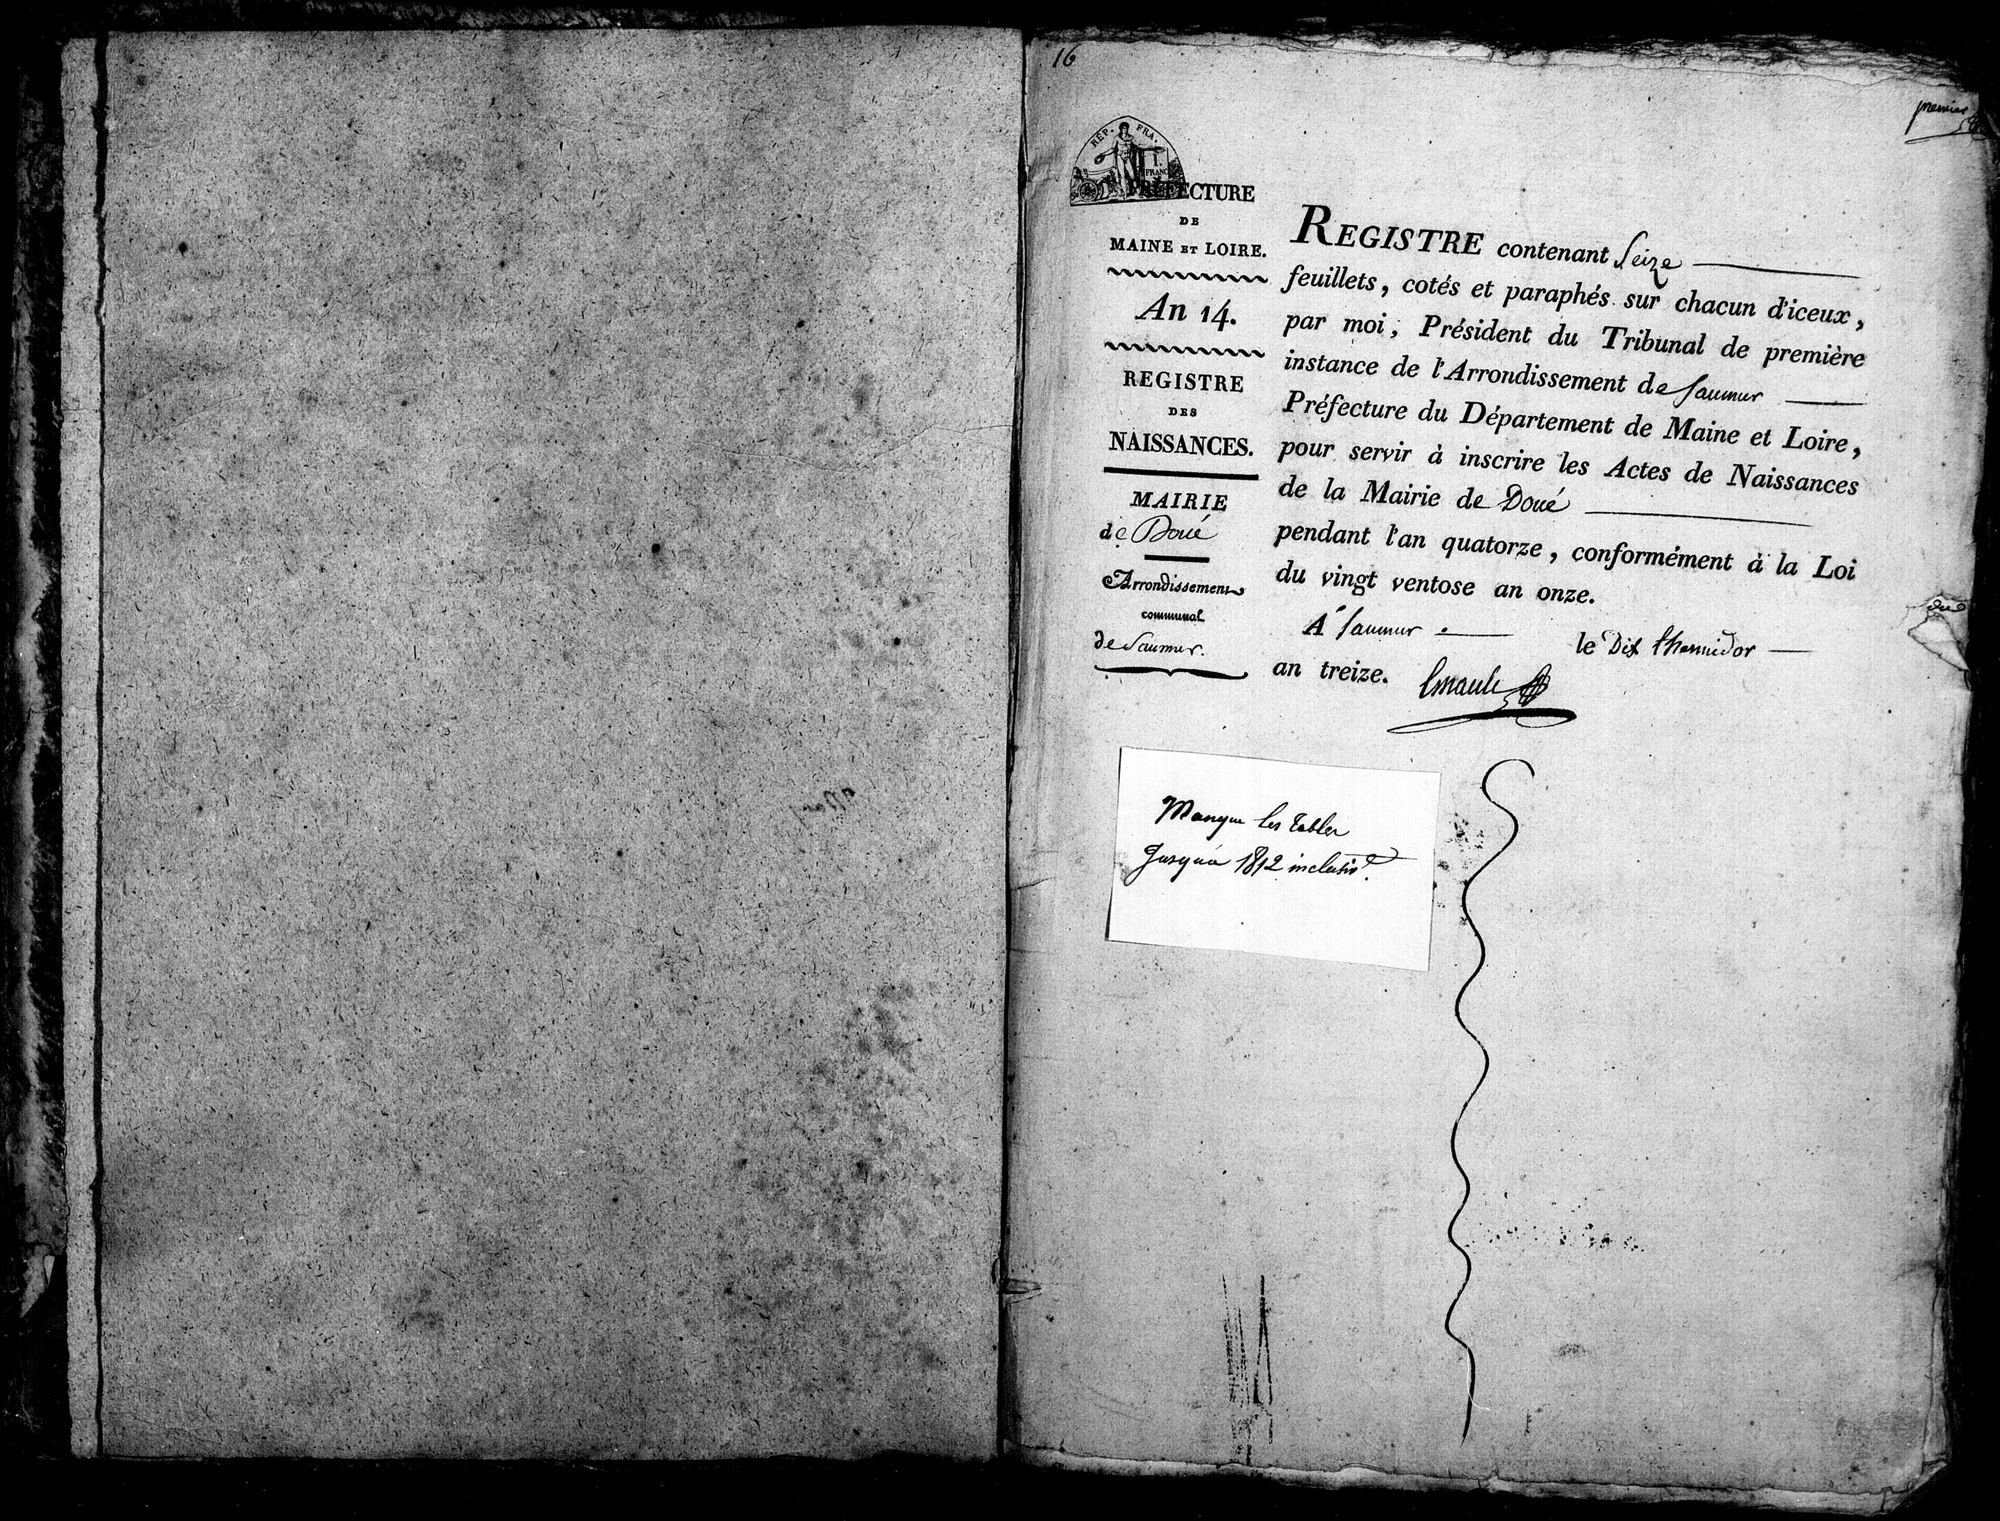 16
premier
RÉP. FRA.
1.
FRANC
PRÉFECTURE
DE
MAINE ET LOIRE.
An 14.
REGISTRE
DES
NAISSANCES.
MAIRIE
de Doué
Arrondissement
communal
de Saumur.
REGISTRE contenant Seize
feuillets, cotés et paraphés sur chacun d'iceux,
par moi, Président du Tribunal de première
instance de l'Arrondissement de Saumur
Préfecture du Département de Maine et Loire,
pour servir à inscrire les Actes de Naissances
de la Mairie de Doué
pendant l'an quatorze, conformément à la Loi
du vingt ventose an onze.
A Saumur le Dix thermidor
an treize.
Manque les tables
Jusqu'à 1812 inclusivt.